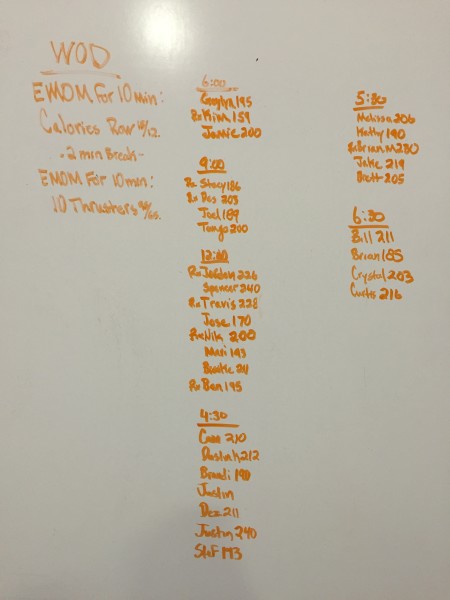 WOD
EMOM For 10 min:
Calories Row
-2 min Break-
EMOM For 10 min:
10 Thrusters
6:00
195
Rx Kim 159
Jamie 200
9:00
Rx Stacy 186
Rx Des 203
Joel 189
Tango 200
12:00
Rx Jordan 226
Spencer 240
Rx Travis 228
Jose 170
Rx Nik 200
Mari 193
Rx Ben 195
4:30
210
212
Brandi 190
Justin
Dez 211
Justin 240
Stef 193
5:30
Melissa 206
Kathy 190
Rx Brian M 230
Jake 219
Brett 205
6:30
Bill 211
Brian 185
Crystal 203
Curtis 216